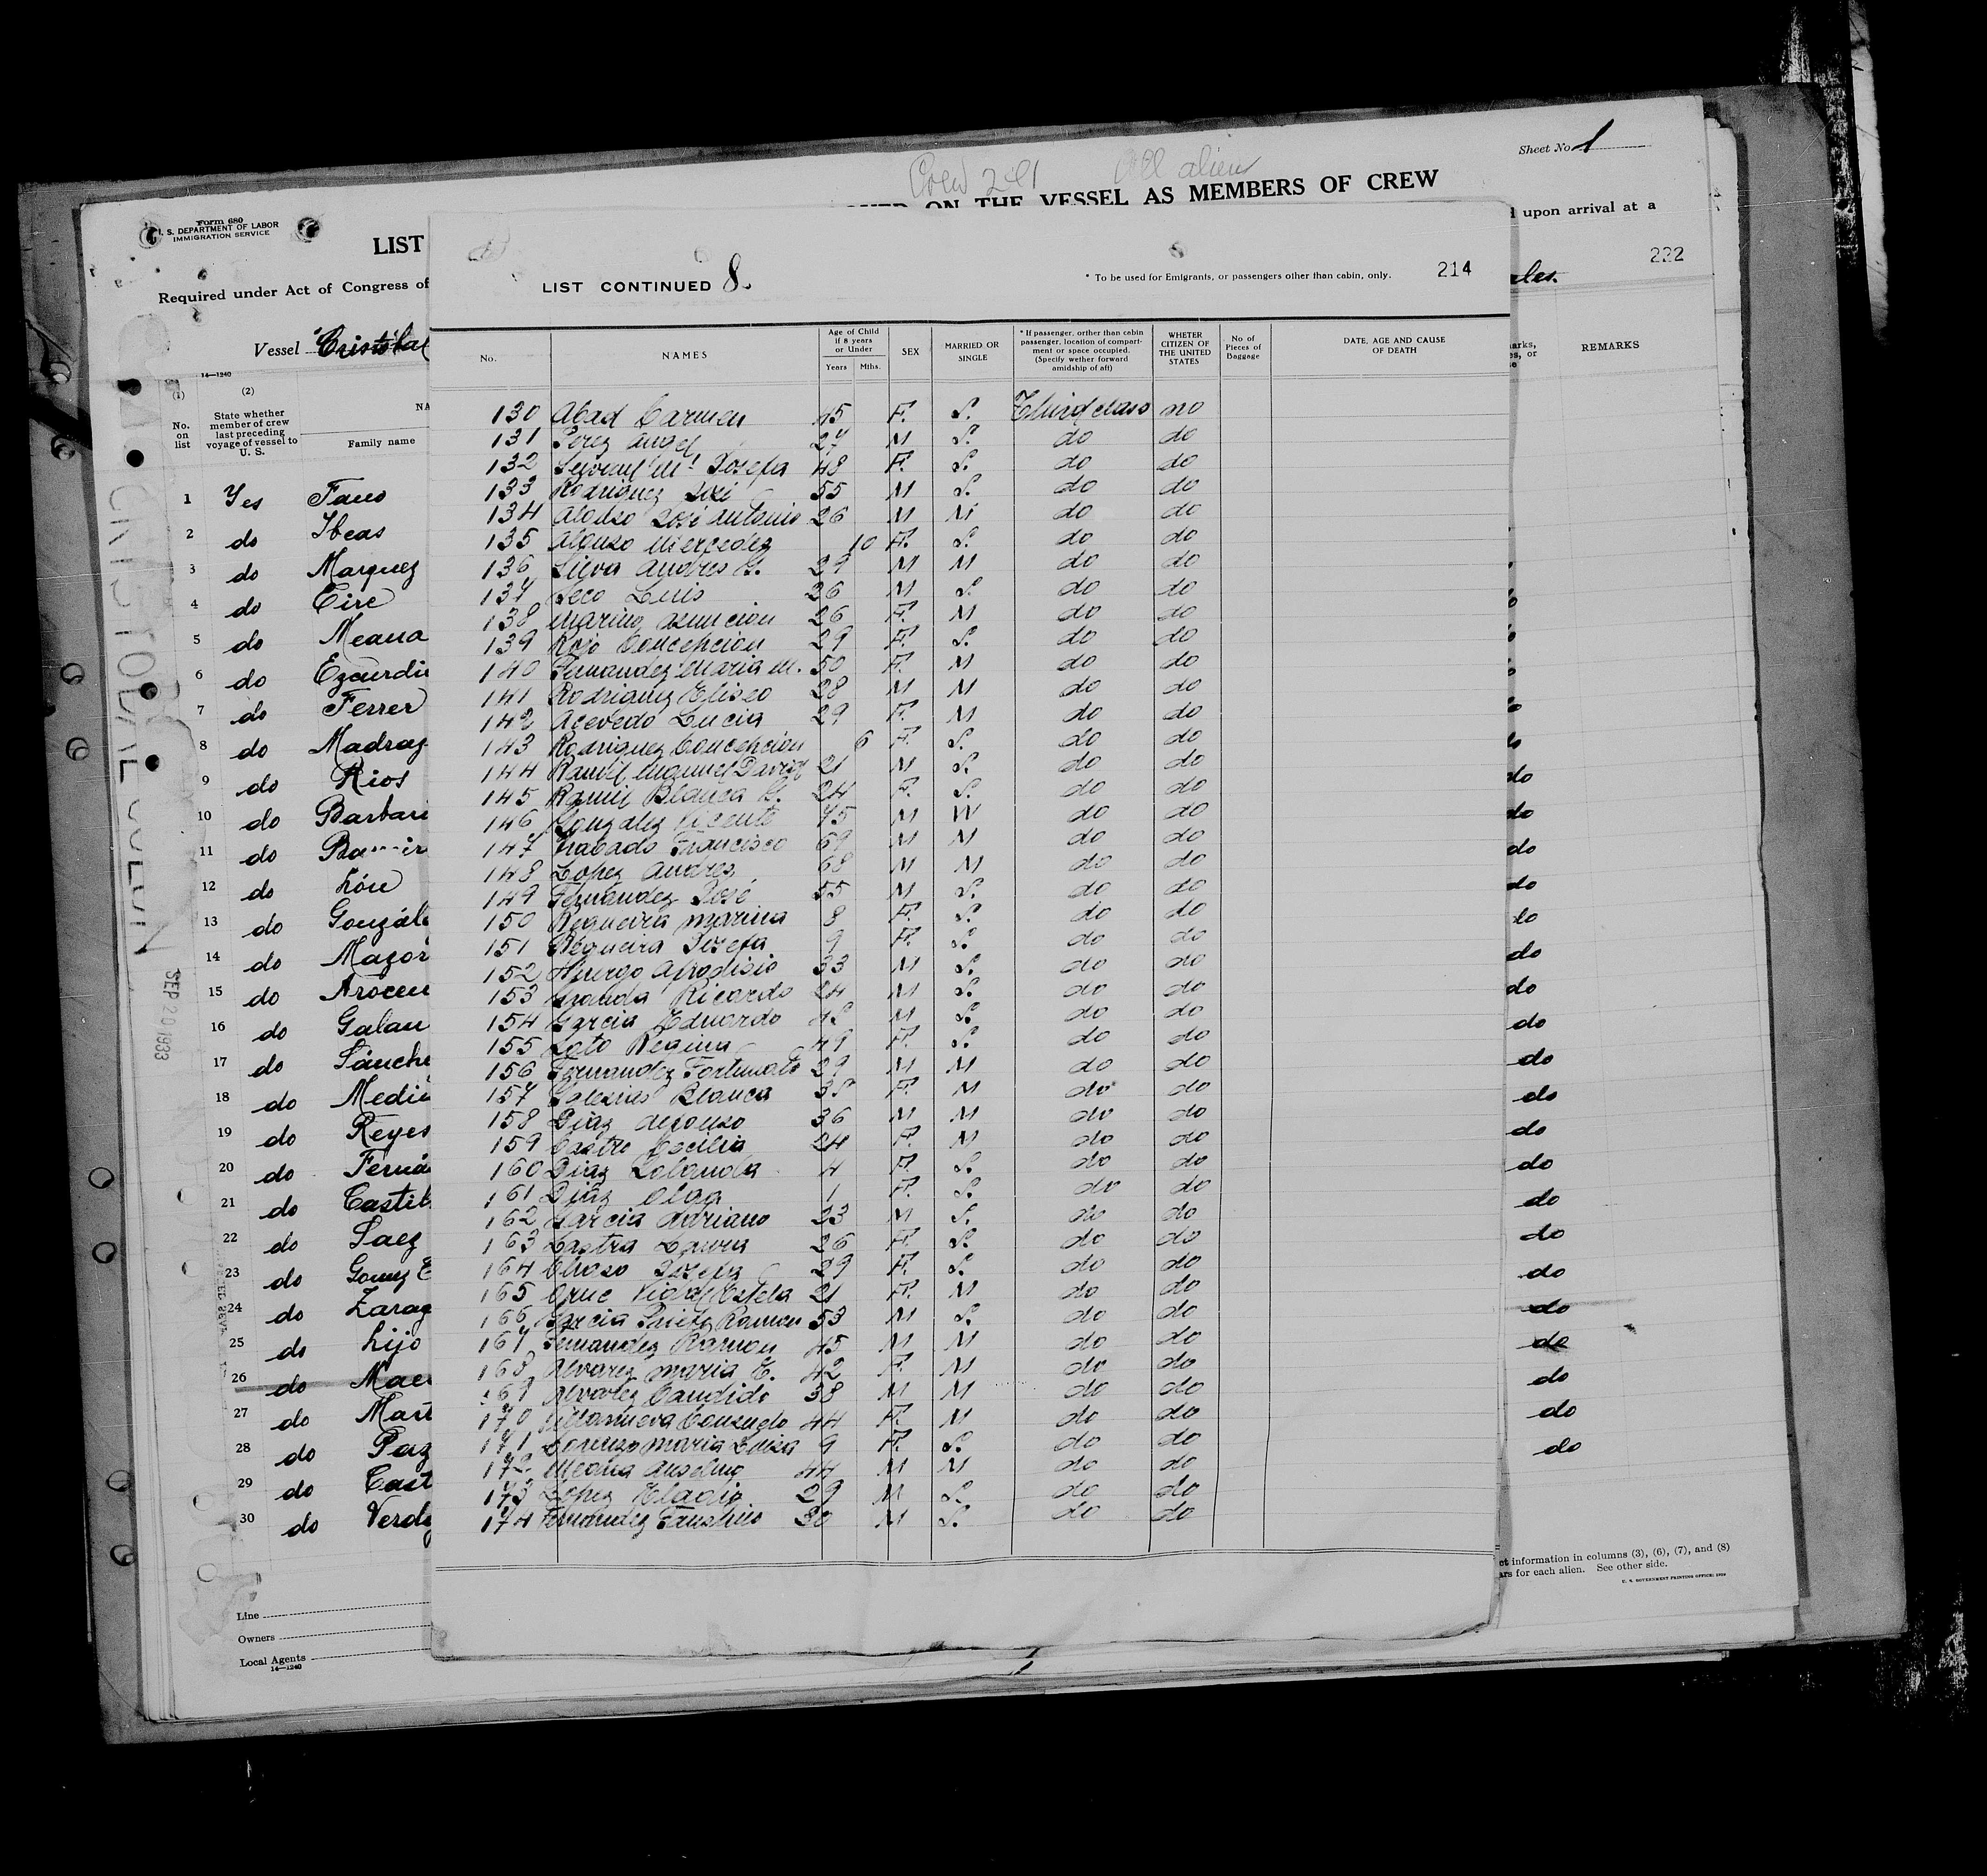 Crew 241 All alien
Sheet No. 1
ON THE VESSEL AS MEMBERS OF CREW
Form 680
U. S. DEPARTMENT OF LABOR
IMMIGRATION SERVICE
LIST
upon arrival at a
Required under Act of Congress of
222
Vessel "Cristobal
14—1240
(2)
No. on list
State whether member of crew last preceding voyage of vessel to U. S.
NA
Family name
REMARKS
1 Yes Fano
2 do Ibeas
3 do Marquez
4 do Eire
5 do Meana
6 do Ezcurdi
7 do Ferrer
8 do Madraz
9 do Rios
10 do Barbari
11 do
12 do Lóu
13 do Gonzál
14 do Mazor
15 do Arocen
16 do Galan
17 do Sánche
18 do Medi
19 do Reyes
20 do Ferná
21 do Castil
22 do Saez
23 do Gomez
24 do Zarag
25 do Lijo
26 do Mae
27 do Mart
28 do Paz
29 do Cast
30 do Verd
SEP 20 1933
Line
Owners
Local Agents
14—1240
LIST CONTINUED 8.
* To be used for Emigrants, or passengers other than cabin, only.
214
No.
NAMES
Age of Child if 8 years or Under
Years Mths.
SEX
MARRIED OR SINGLE
* If passenger, orther than cabin passenger, location of compartment or space occupied. (Specify wether forward amidship of aft)
WHETER CITIZEN OF THE UNITED STATES
No of Pieces of Baggage
DATE, AGE AND CAUSE OF DEATH
130 Abad Carmen 45 F. S. Third class no
131 Perez Angel 27 M S. do do
132 Mª Josefa 48 F. S. do do
133 Rodriguez José 55 M S. do do
134 Alonso José Antonio 26 M M do do
135 Alonso Mercedes 10 F. S. do do
136 Andres G. 29 M M do do
137 Seco Luis 26 M S. do do
138 Marino Asuncion 26 F. M do do
139 Rojo Concepcion 29 F. S. do do
140 Fernandez Maria M. 50 F. M do do
141 Rodriguez Eliseo 28 M M do do
142 Acevedo Lucia 29 F. M do do
143 Rodriguez Concepcion 6 F. S. do do
144 Ramil Manuel David 21 M S. do do
145 Ramil Blanca G. 24 F. S. do do
146 Gonzalez Vicente 75 M W do do
147 Trabado Francisco 69 M M do do
148 Lopez Andres 68 M M do do
149 Fernandez José 55 M S. do do
150 Regueira Marina 8 F. S. do do
151 Regueira Josefa 9 F. S. do do
152 Huergo Afrodisio 33 M S. do do
153 Granda Ricardo 24 M S. do do
154 Garcia Eduardo M S. do do
155 Regina 49 F. S. do do
156 Fernandez Fortunato 29 M M do do
157 Blanca F. M do do
158 Diaz Alfonso 36 M M do do
159 Castro Cecilia 24 F. M do do
160 Diaz 4 F. S. do do
161 Diaz Olga 1 F. S. do do
162 Garcia Adriano 23 M S. do do
163 Lastra Laura 26 F. S. do do
164 Josefa 29 F. S. do do
165 Vidal Estela 21 F. M do do
166 Garcia Prieto Ramon 53 M S. do do
167 Fernandez Ramon 45 M M do do
168 Alvarez Maria E. 42 F. M do do
169 Alvarez Candido 38 M M do do
170 Villanueva Consuelo 44 F. M do do
171 Lorenzo Maria Luisa 9 F. S. do do
172 Meana Anselmo 44 M M do do
173 Lopez Eladio 29 M S. do do
174 Fernandez Faustino 30 M S. do do
ct information in columns (3), (6), (7), and (8)
ars for each alien. See other side.
U. S. GOVERNMENT PRINTING OFFICE: